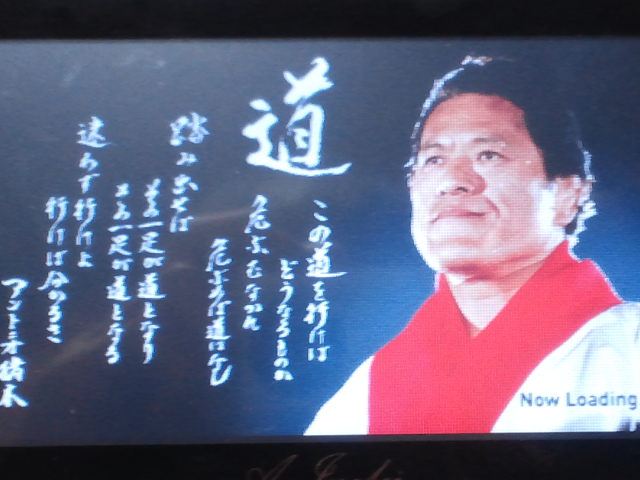 道
この道を行けば
どうなるものか
危ぶむなかれ
危ぶめば道はなし
踏み出せば
その一足が道となり
その一足が道となる
迷わず行けよ
行けば分かるさ
アントニオ猪木
Now Loading